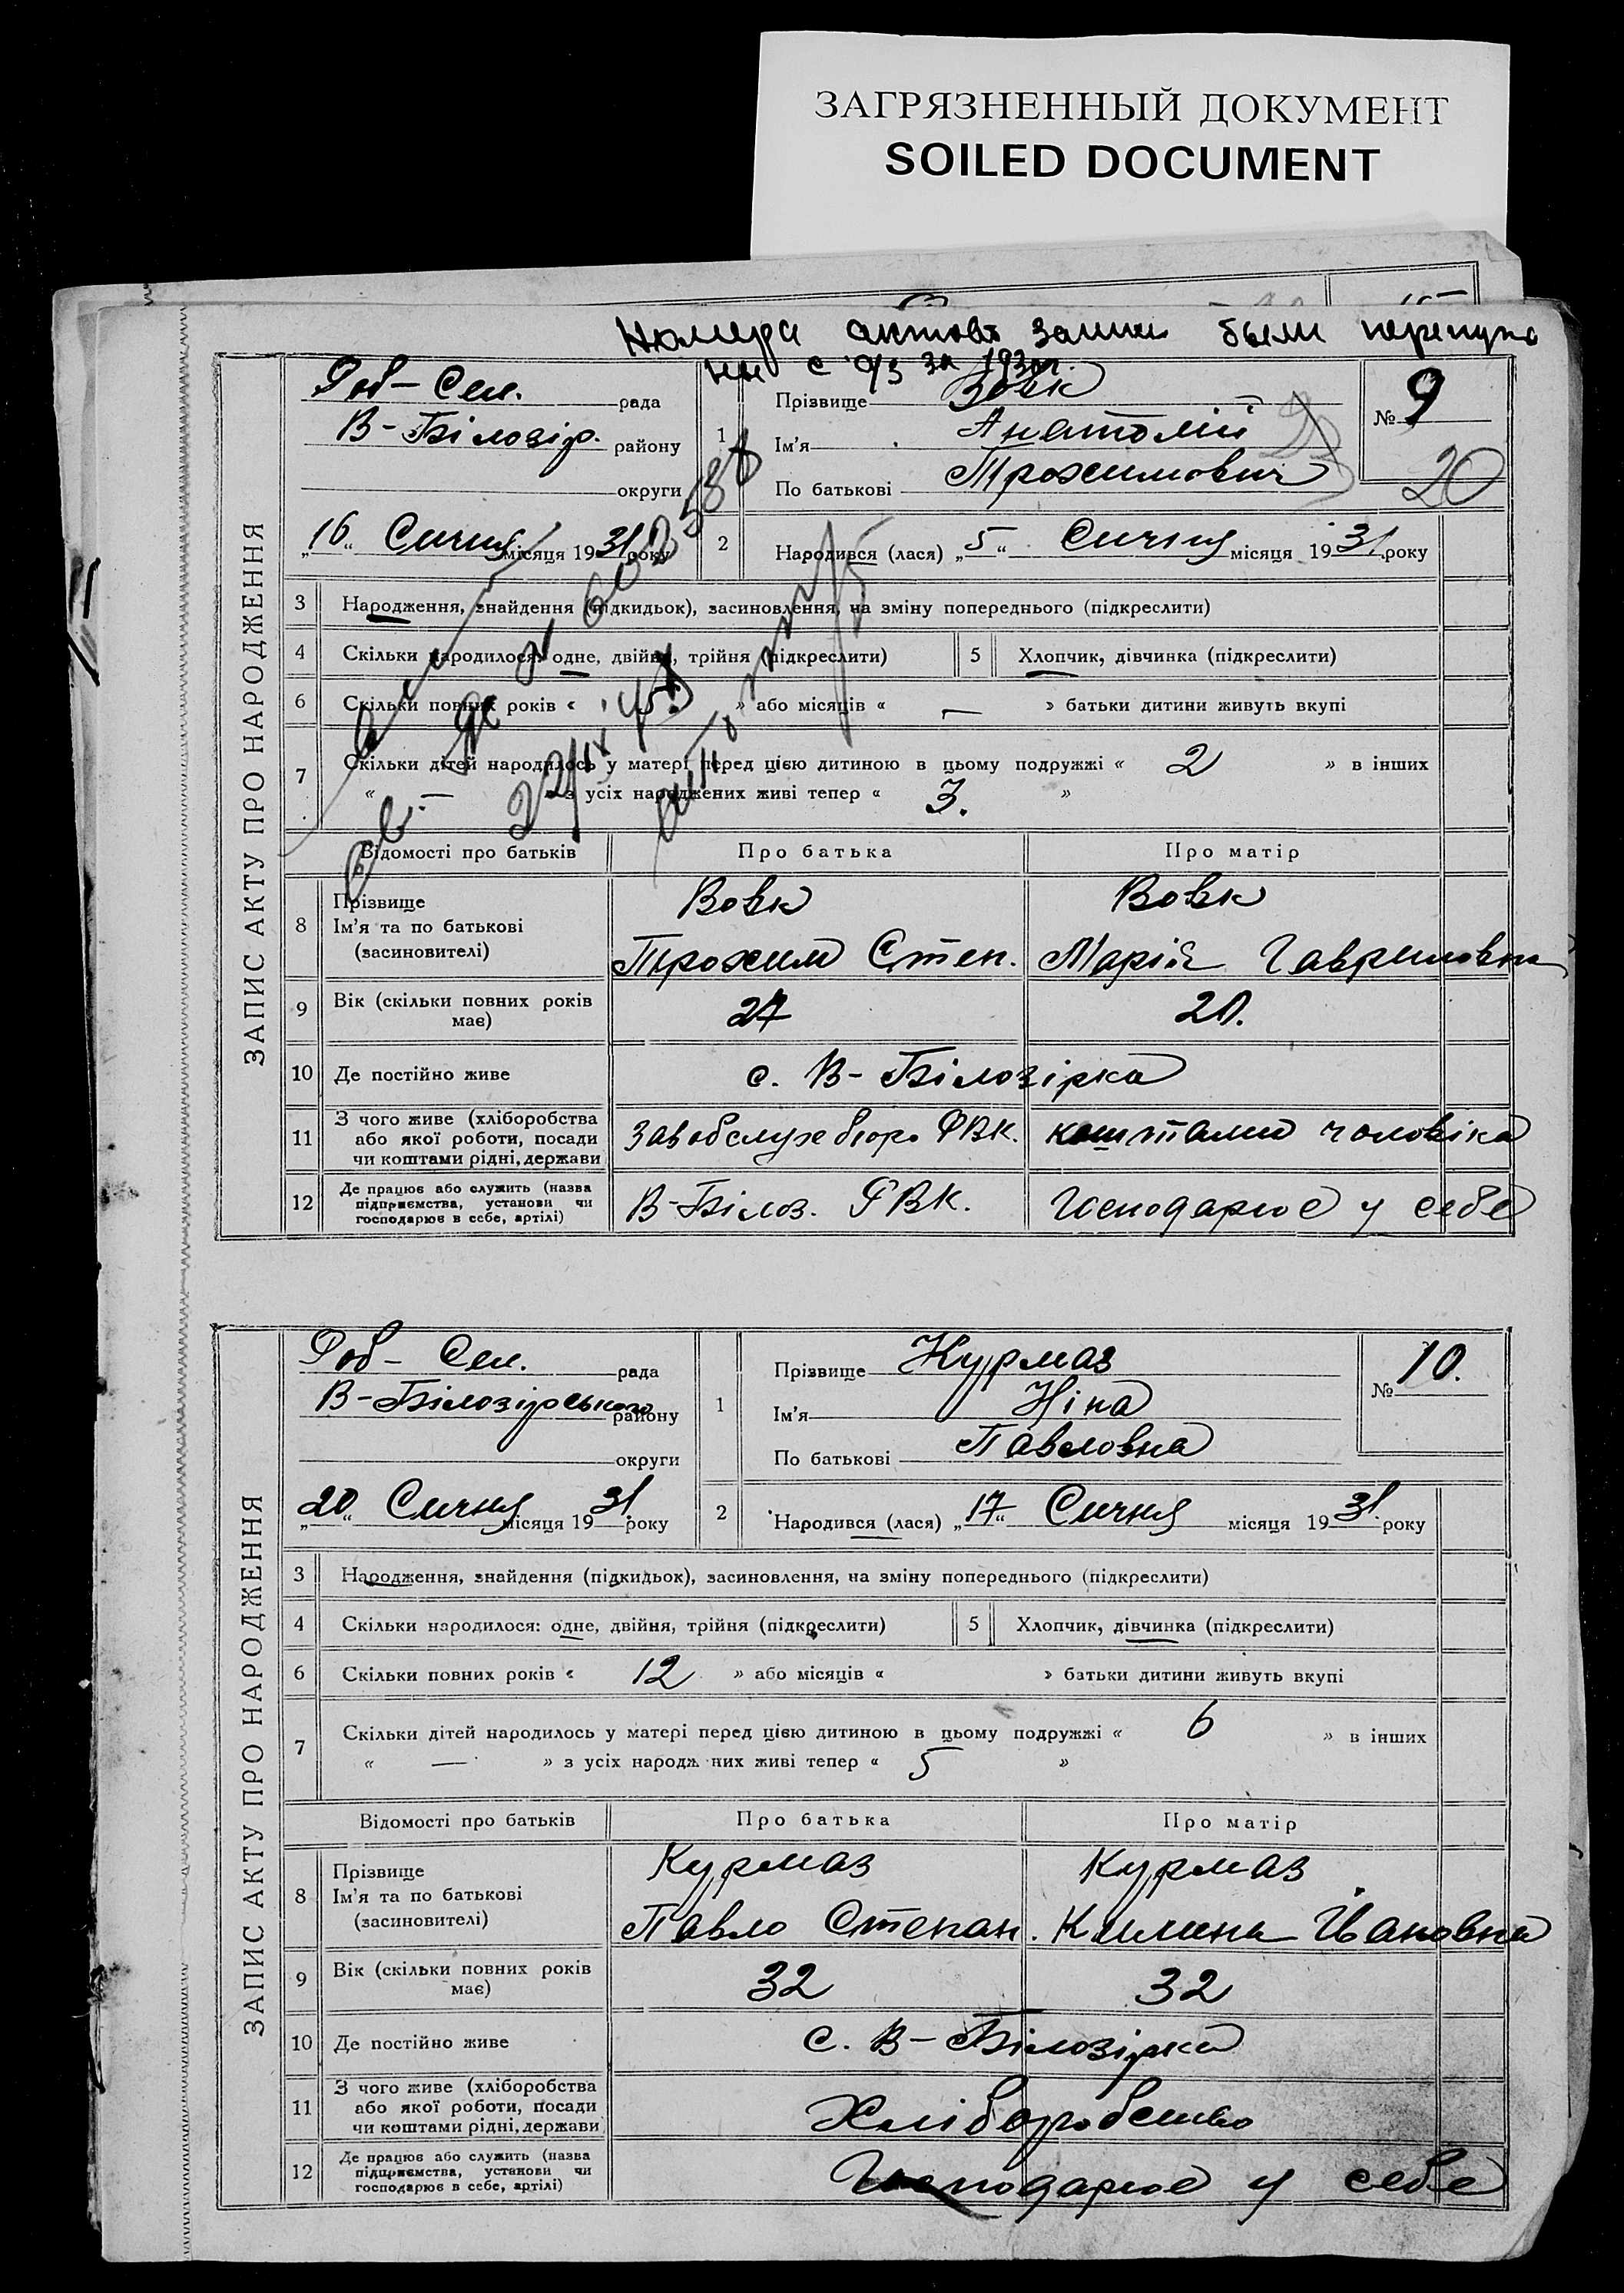 ЗАГРЯЗНЕННЫЙ ДОКУМЕНТ
SOILED DOCUMENT
Номера актових записи были перепута
ны с а/з за 1930г.
ЗАПИС АКТУ ПРО НАРОДЖЕННЯ
Роб-Сел. рада
В-Білозір. району
округи
„16“ Січня місяця 1931 року
1 Прізвище Вовк
Ім'я Анатолій
По батькові Трохимович
№ 9
20
2 Народився (лася) „5“ Січня місяця 1931 року
3 Народження, знайдення (підкидьок), засиновлення, на зміну попереднього (підкреслити)
4 Скільки народилося: одне, двійня, трійня (підкреслити) 5 Хлопчик, дівчинка (підкреслити)
6 Скільки повних років « » або місяців « — » батьки дитини живуть вкупі
7 Скільки дітей народилось у матері перед цією дитиною в цьому подружжі « 2 » в інших
« — » з усіх народжених живі тепер « 3. »
Відомості про батьків Про батька Про матір
8 Прізвище
Ім'я та по батькові
(засновителі)
Вовк
Трохим Степ.
Вовк
Марія Гавриловна
9 Вік (скільки повних років
має)
27 20.
10 Де постійно живе с. В-Білозірка
11 З чого живе (хліборобства
або якої роботи, посади
чи коштами рідні, держави
Завобслуж бюро РВК. коштами чоловіка
12 Де працює або служить (назва
підприємства, установи чи
господарює в себе, артілі)
В-Білоз. РВК. Господарює у себе
ЗАПИС АКТУ ПРО НАРОДЖЕННЯ
Роб- Сел. рада
В-Білозірського району
округи
„20“ Січня місяця 1931. року
1 Прізвище Курмаз
Ім'я Ніна
По батькові Павловна
№ 10.
2 Народився (лася) „17“ Січня місяця 1931. року
3 Народження, знайдення (підкидьок), засиновлення, на зміну попереднього (підкреслити)
4 Скільки народилося: одне, двійня, трійня (підкреслити) 5 Хлопчик, дівчинка (підкреслити)
6 Скільки повних років « 12 » або місяців « » батьки дитини живуть вкупі
7 Скільки дітей народилось у матері перед цією дитиною в цьому подружжі « 6 » в інших
« — » з усіх народж них живі тепер « 5 »
Відомості про батьків Про батька Про матір
8 Прізвище
Ім'я та по батькові
(засиновителі)
Курмаз
Павло Степан.
Курмаз
Килина Івановна
9 Вік (скільки повних років
має)
32 32
10 Де постійно живе с. В-Білозірка
11 З чого живе (хліборобства
або якої роботи, посади
чи коштами рідні, держави
Хліборобство
12 Де працює або служить (назва
підприємства, установи чи
господарює в себе, артілі)
Господарює у себе